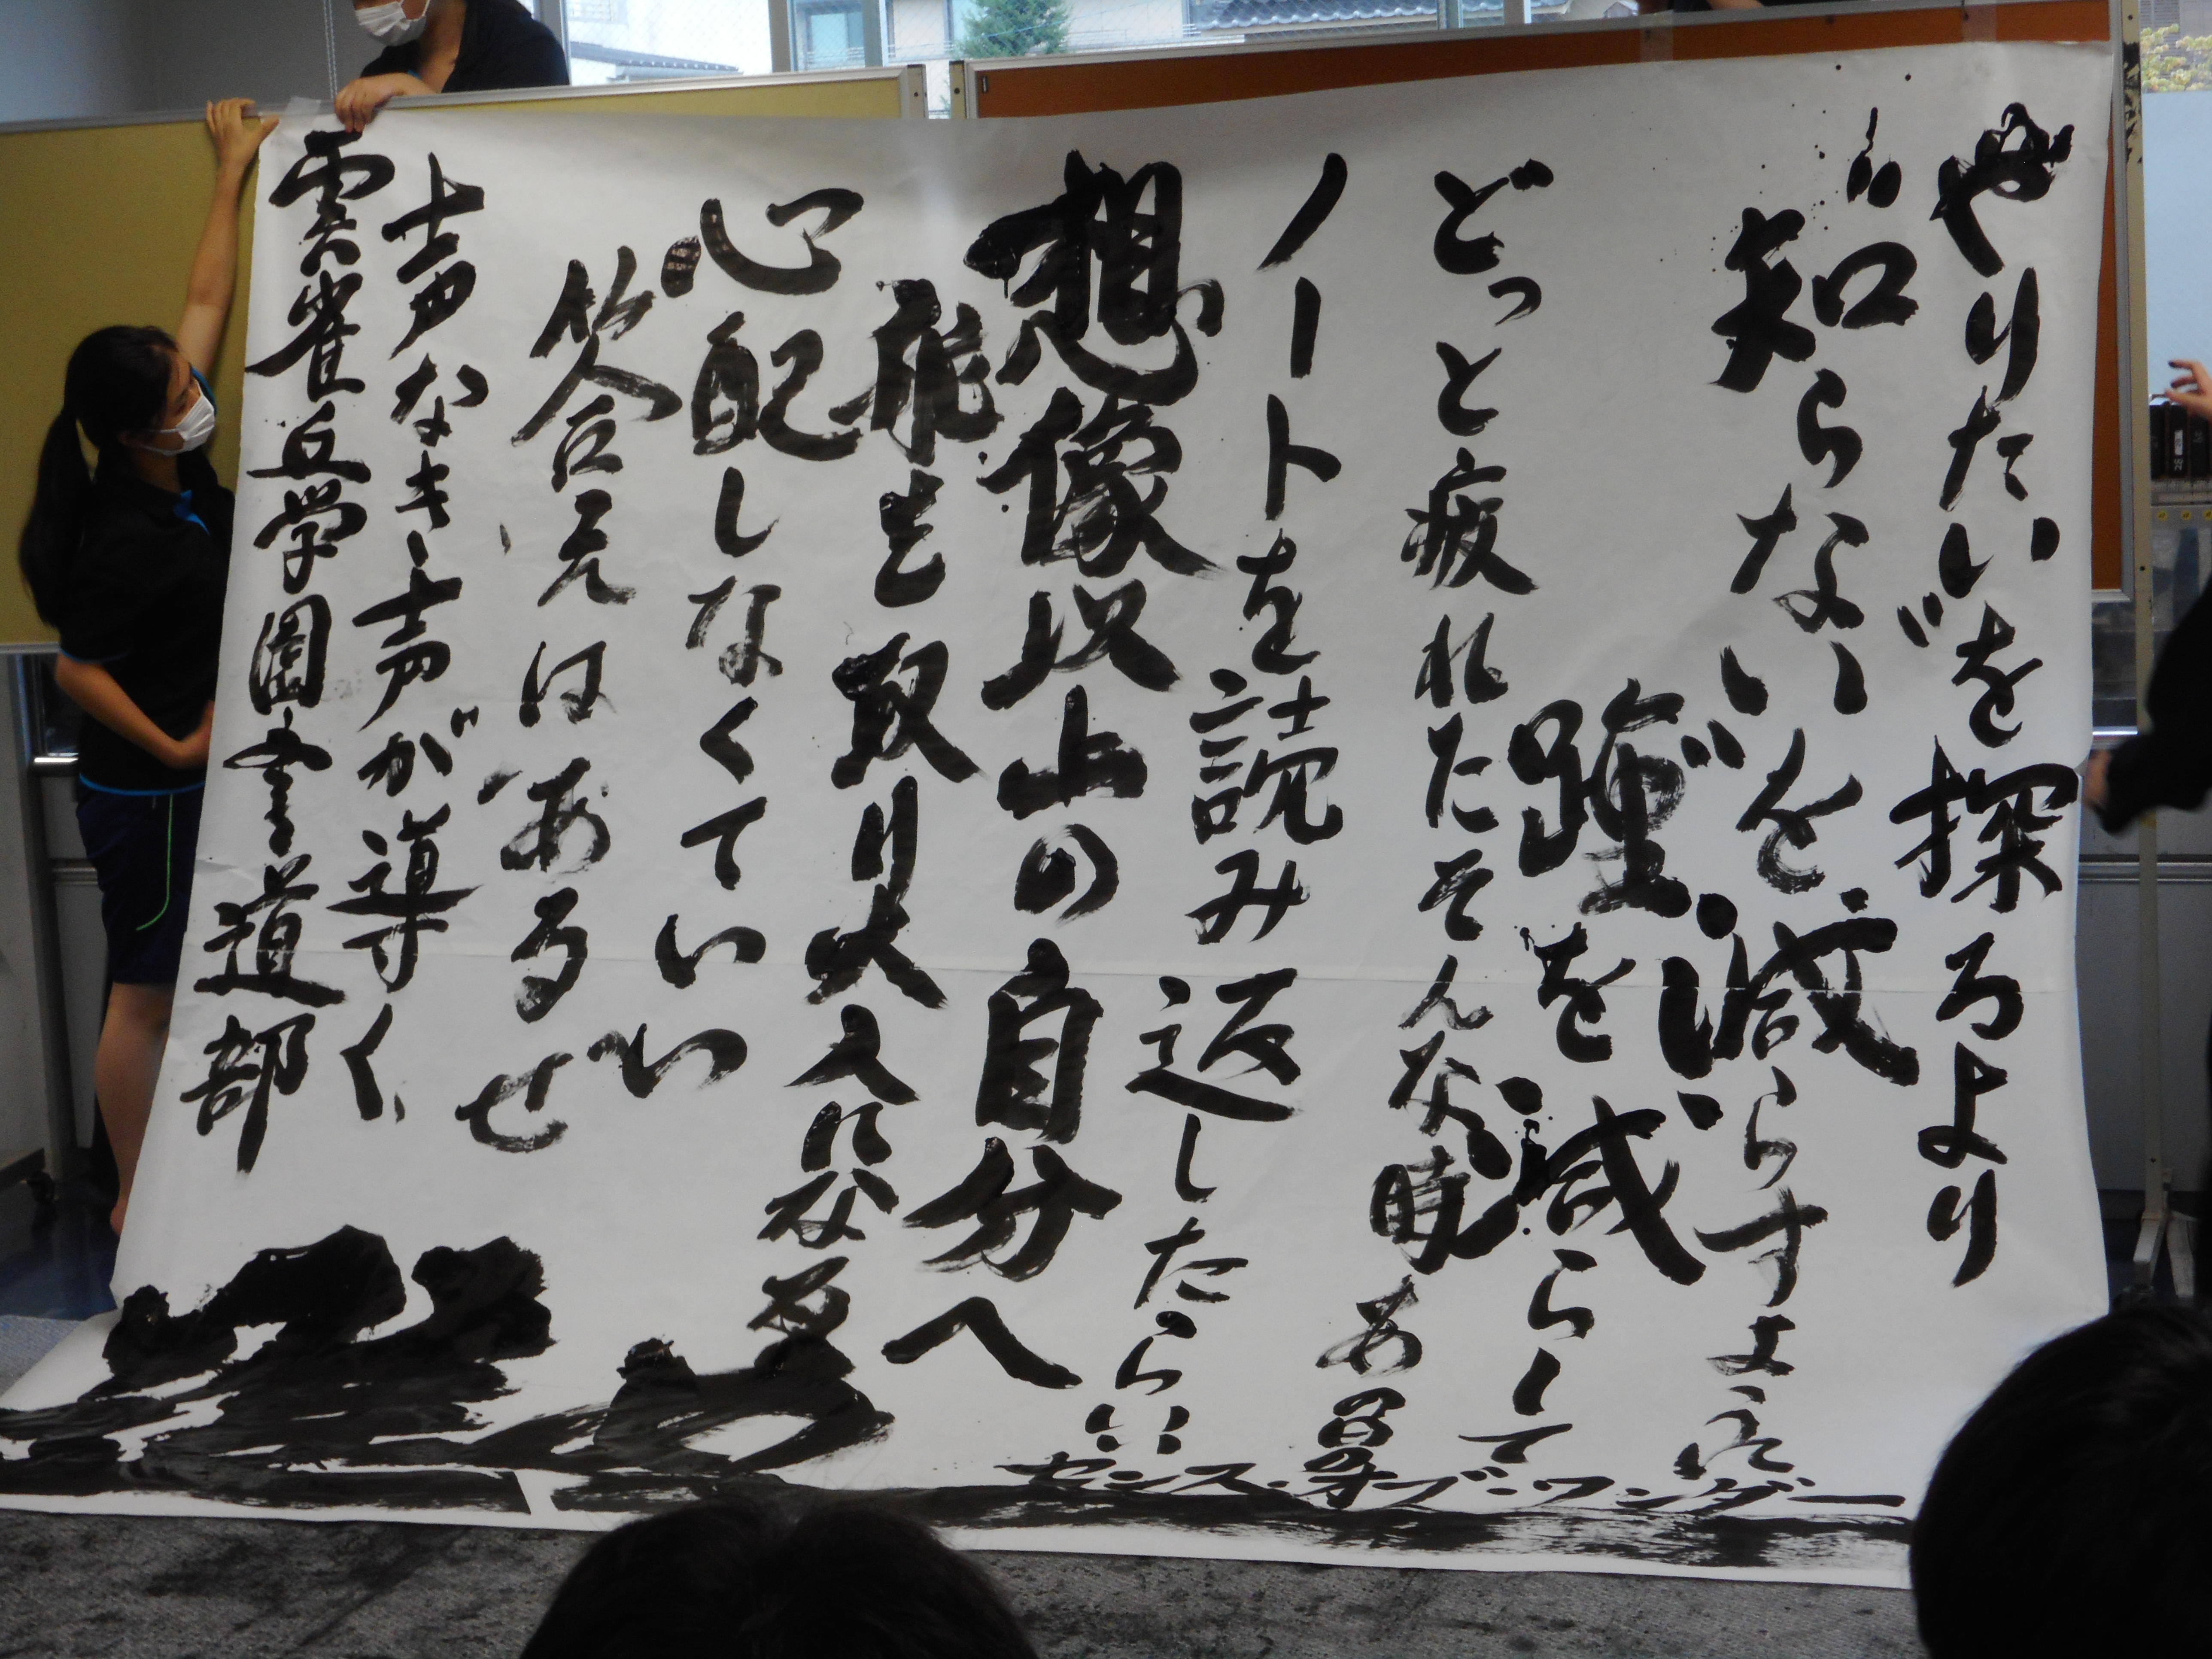 〝やりたい〟を探るより
〝知らない〟を減らすように
踵を減らして
どっと疲れたそんな時あの日の
ノートを読み返したらいい
想像以上の自分へ
を取り
心配しなくていい
答えはあるぜ
声なき声が導く
雲雀丘学園書道部
センス・オブ・ワンダー